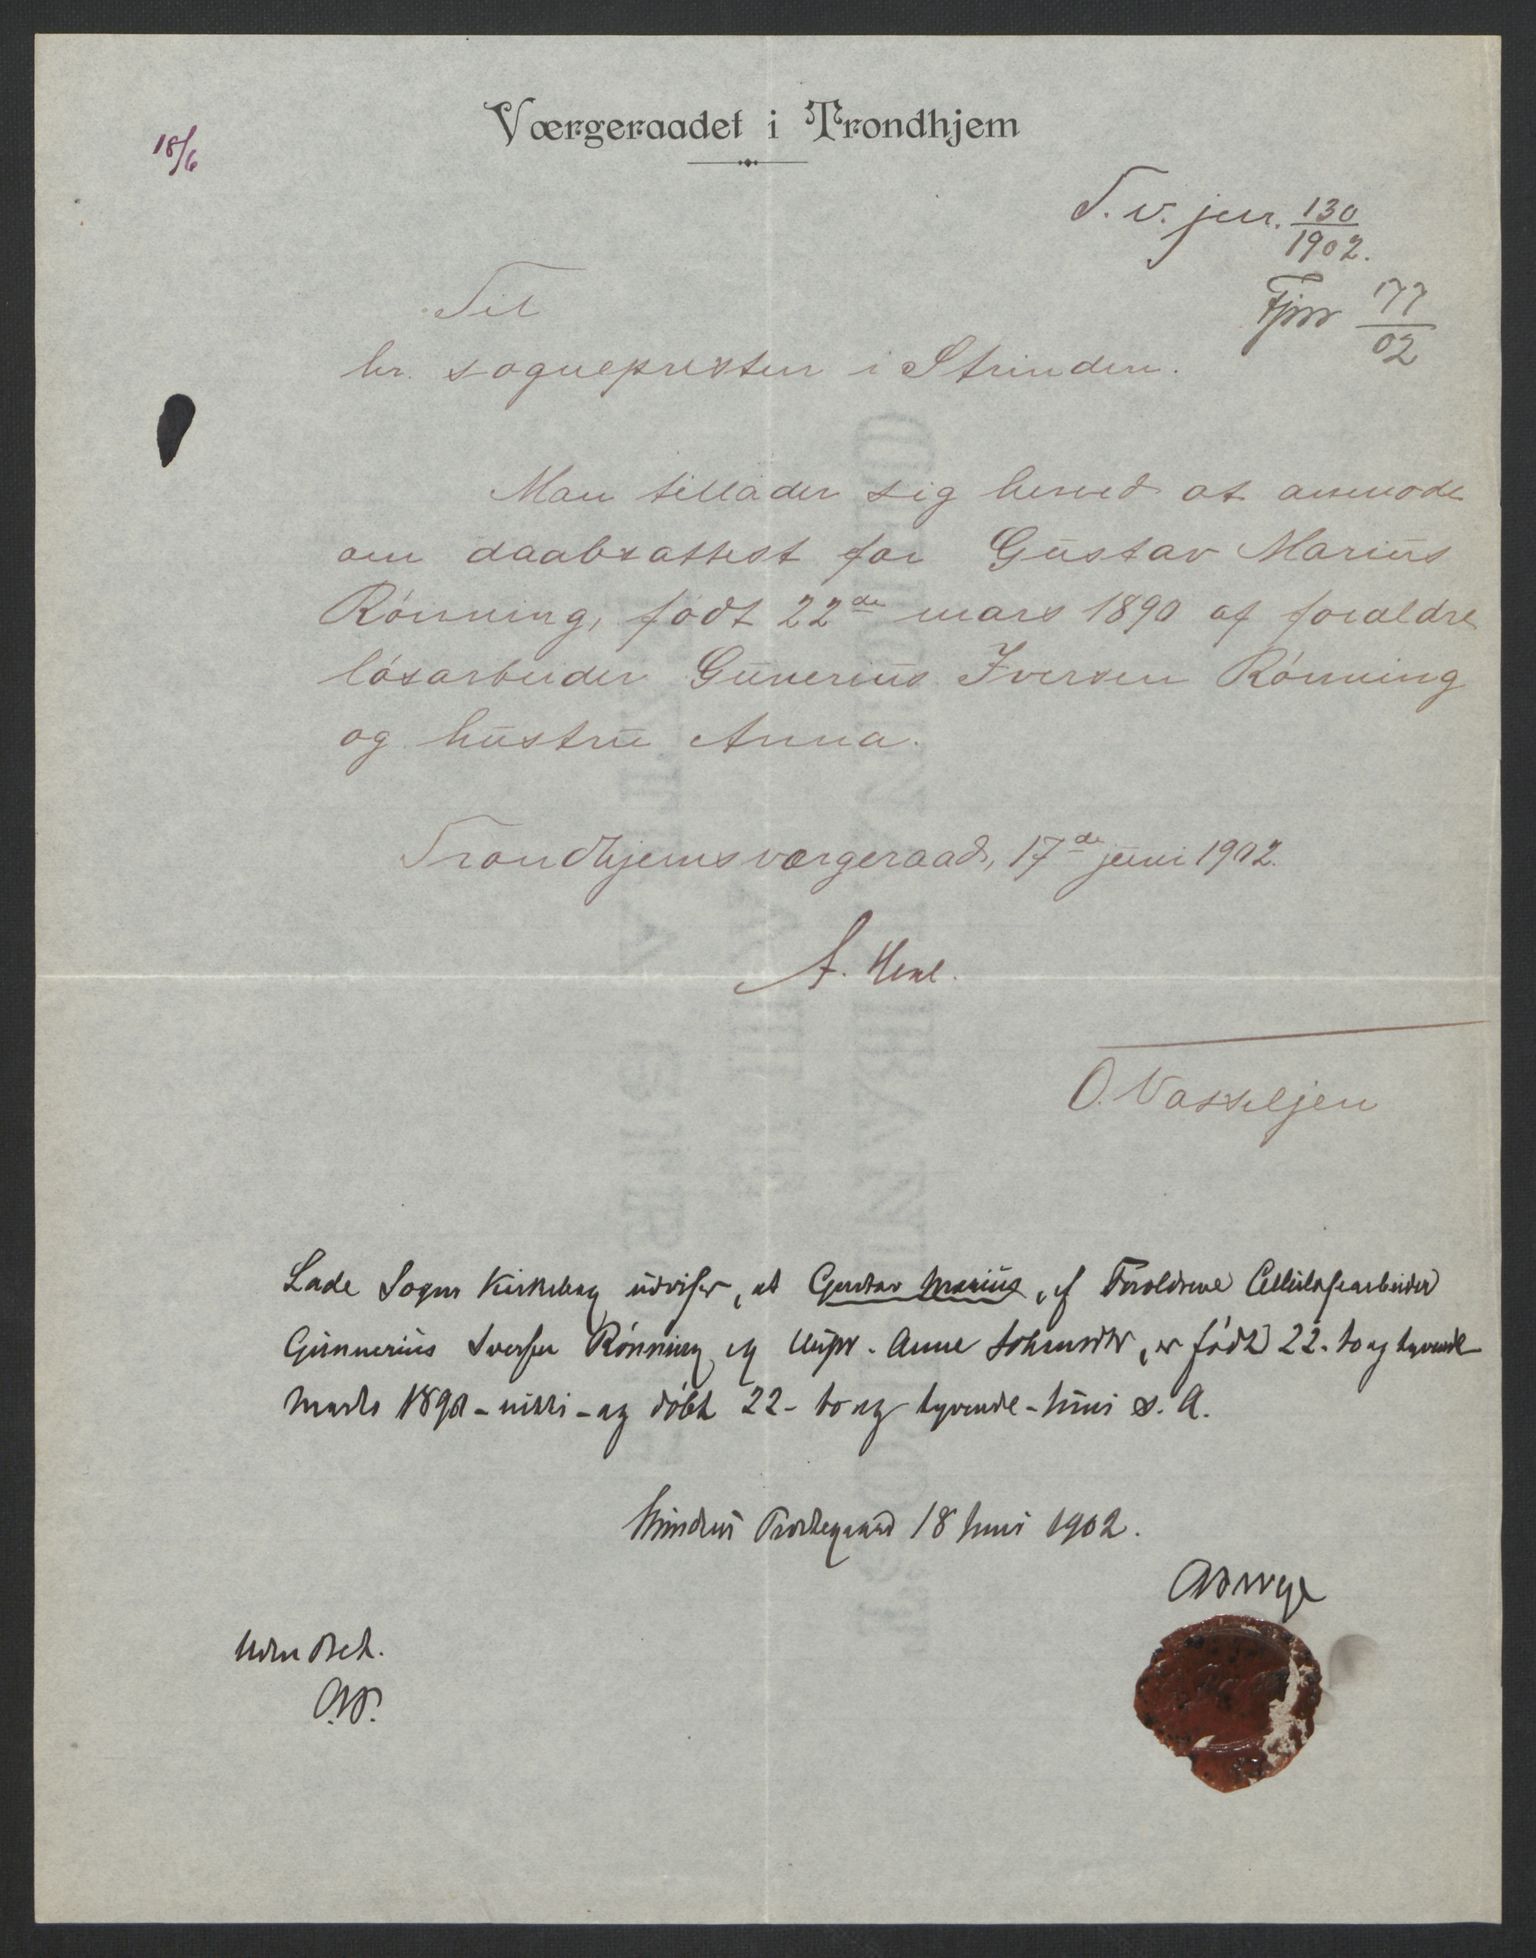 Værgeraadet i Trondhjem
18/6
T. v. jur. 130/1902.
Fjnr 77/02
Til
hr. sognepresten i Strinden.
Man tillader sig herved at anmode
om daabsattest for Gustav Marius
Rönning, født 22de mars 1890 af forældre
løsarbeider Gunerius Iversen Rönning
og hustru Anna.
Trondhjems værgeraad, 17de juni 1902.
A.
O. Vasseljen
Lade Sogns Kirkebog udviser, at Gustav Marius, af Forældrene Cellulosearbeider
Gunnerius Iversen Rönning og Anne, er født 22. to og tyvende
Marts 1890 - nitti - og döbt 22 - to og tyvende - Juni s. A.
Strindens Prestegaard 18 Juni 1902.
Uden Bet.